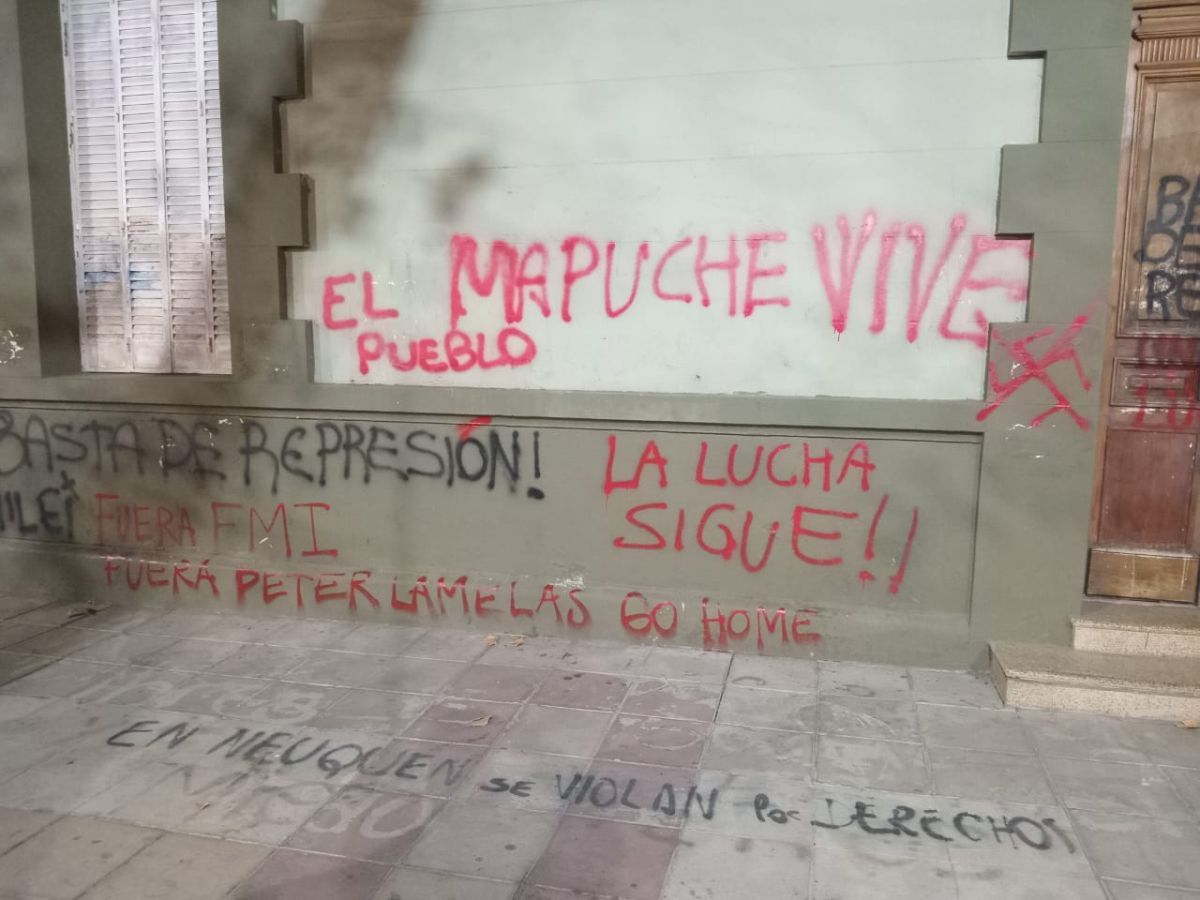 EL MAPUCHE VIVE
PUEBLO
BASTA DE REPRESIÓN!
LA LUCHA
SIGUE!!
FUERA FMI
FUERA PETER LAMELAS GO HOME
EN NEUQUEN SE VIOLAN DERECHOS